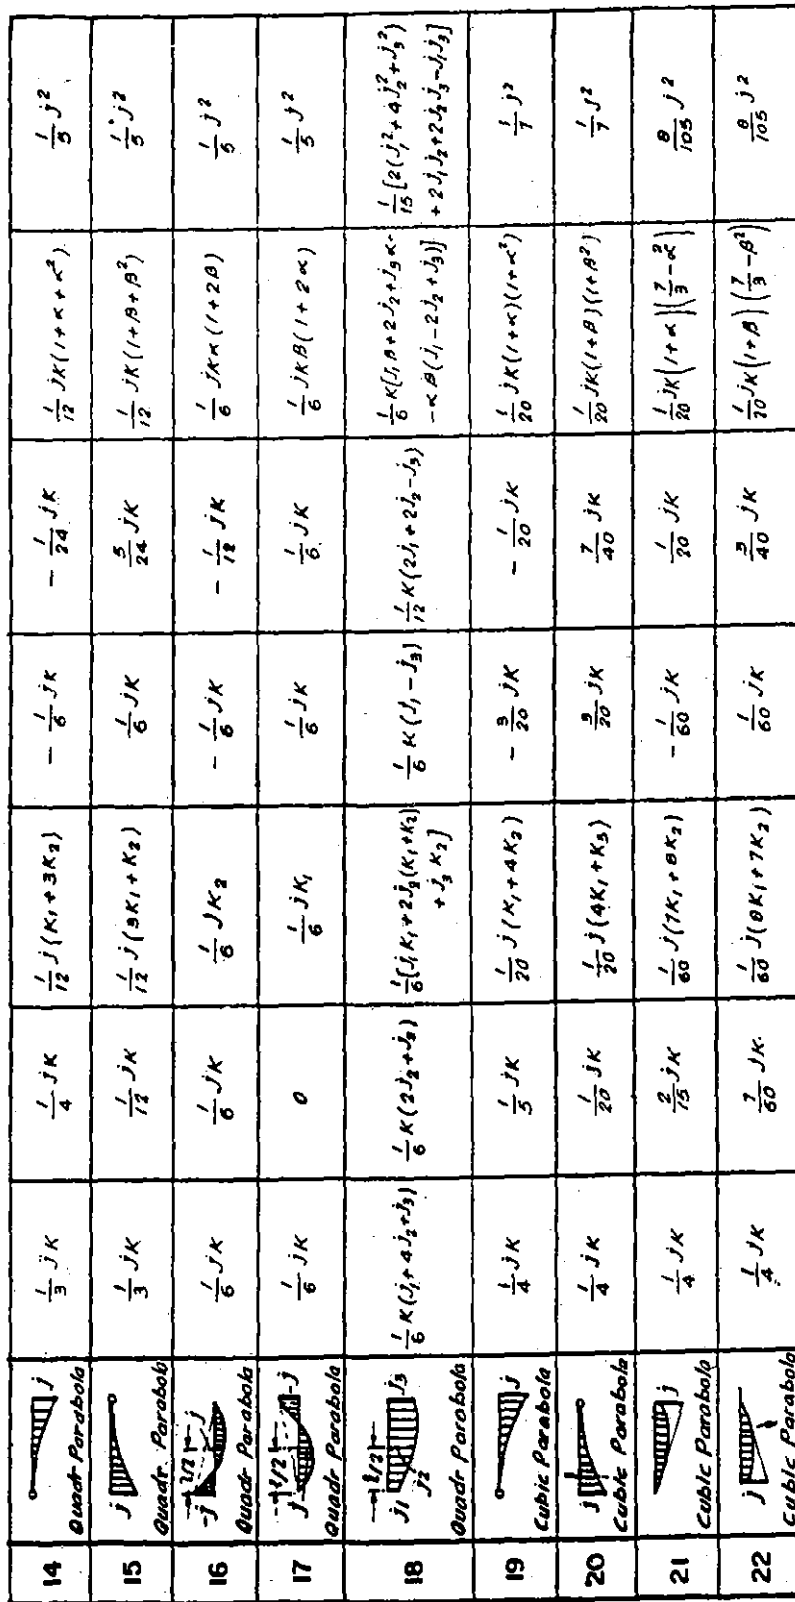 14
j
Quadr Parabola
1/3 jK
1/4 jK
1/12 j(K₁+3K₂)
- 1/6 jK
- 1/24 jK
1/12 jK(1+α+α²)
1/5 j²
15
j
Quadr. Parabola
1/3 jK
1/12 jK
1/12 j(3K₁+K₂)
1/6 jK
5/24 jK
1/12 jK(1+β+β²)
1/5 j²
16
-j ℓ/2 j
Quadr Parabola
1/6 jK
1/6 jK
1/6 jK₂
- 1/6 jK
- 1/12 jK
1/6 jKα(1+2β)
1/5 j²
17
j ℓ/2 -j
Quadr Parabola
1/6 jK
0
1/6 jK₁
1/6 jK
1/6 jK
1/6 jKβ(1+2α)
1/5 j²
18
ℓ/2
j₁ j₂ j₃
Quadr Parabola
1/6 K(j₁+4j₂+j₃)
1/6 K(2j₂+j₃)
1/6[j₁K₁+2j₂(K₁+K₂)
+j₃K₂]
1/6 K(j₁-j₃)
1/12 K(2j₁+2j₂-j₃)
1/6 K[j₁β+2j₂+j₃α-
-αβ(j₁-2j₂+j₃)]
1/15[2(j₁²+4j₂²+j₃²)
+2j₁j₂+2j₂j₃-j₁j₃]
19
j
Cubic Parabola
1/4 jK
1/5 jK
1/20 j(K₁+4K₂)
- 3/20 jK
- 1/20 jK
1/20 jK(1+α)(1+α²)
1/7 j²
20
j
Cubic Parabola
1/4 jK
1/20 jK
1/20 j(4K₁+K₂)
3/20 jK
7/40 jK
1/20 jK(1+β)(1+β²)
1/7 j²
21
j
Cubic Parabola
1/4 jK
2/15 jK
1/60 j(7K₁+8K₂)
- 1/60 jK
1/20 jK
1/20 jK(1+α)(7/3-α²)
8/105 j²
22
j
Cubic Parabola
1/4 jK
7/60 jK
1/60 j(8K₁+7K₂)
1/60 jK
3/40 jK
1/20 jK(1+β)(7/3-β²)
8/105 j²